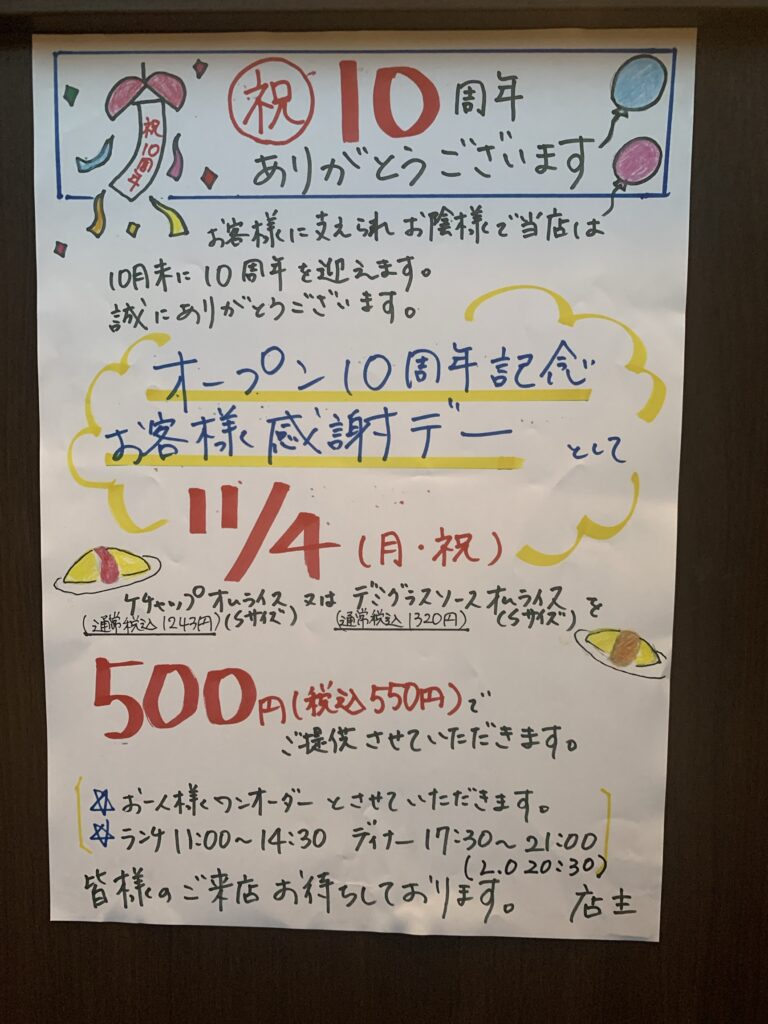 祝10周年
㊗ 10周年
ありがとうございます
お客様に支えられお陰様で当店は
10月末に10周年を迎えます。
誠にありがとうございます。
オープン10周年記念
お客様感謝デー として
11/4(月・祝)
ケチャップオムライス 又は デミグラスソースオムライス を
(通常税込1243円)(Sサイズ) (通常税込1320円) (Sサイズ)
500円(税込550円)で
ご提供させていただきます。
☆お一人様ワンオーダーとさせていただきます。
☆ランチ11:00〜14:30 ディナー17:30〜21:00
(L.O 20:30)
皆様のご来店お待ちしております。 店主